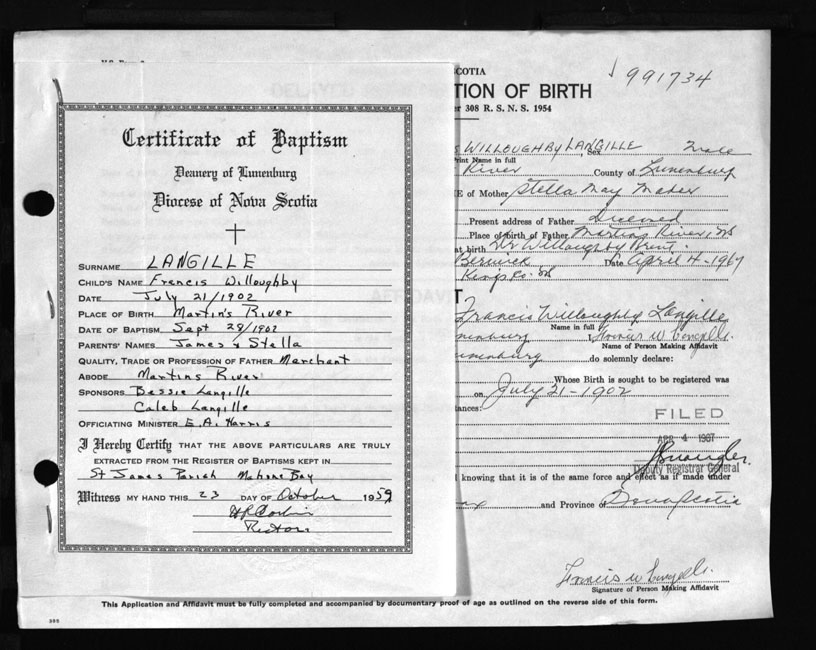 Certificate of Baptism
Deanery of Lunenburg
Diocese of Nova Scotia
SURNAME LANGILLE
CHILD'S NAME Francis Willoughby
DATE July 21/1902
PLACE OF BIRTH Martin's River
DATE OF BAPTISM Sept 29/1902
PARENTS' NAMES James & Stella
QUALITY, TRADE OR PROFESSION OF FATHER Merchant
ABODE Martins River
SPONSORS Bessie Langille
Caleb Langille
OFFICIATING MINISTER E.A. Harris
I Hereby Certify THAT THE ABOVE PARTICULARS ARE TRULY
EXTRACTED FROM THE REGISTER OF BAPTISMS KEPT IN
St James Parish Mahone Bay
Witness MY HAND THIS 23 DAY OF October 1959
Rector
SCOTIA
991734
TION OF BIRTH
er 308 R. S. N. S. 1954
s WILLOUGHBY LANGILLE, Sex Male
Print Name in full
River County of Lunenburg
E of Mother Stella May Mader
Present address of Father Deceased
Place of birth of Father Martins River, NS
at birth Dr Willoughby
Berwick Date April 4-1967
Kings Co. NS
T
Francis Willoughby Langille
Name in full
nenburg I, Francis W Langille
Name of Person Making Affidavit
unenburg do solemnly declare:
Whose Birth is sought to be registered was
on July 21-1902
tances:
FILED
APR 4 1967
Deputy Registrar General
d knowing that it is of the same force and effect as if made under
ax and Province of Nova Scotia
Francis W Langille
Signature of Person Making Affidavit
This Application and Affidavit must be fully completed and accompanied by documentary proof of age as outlined on the reverse side of this form.